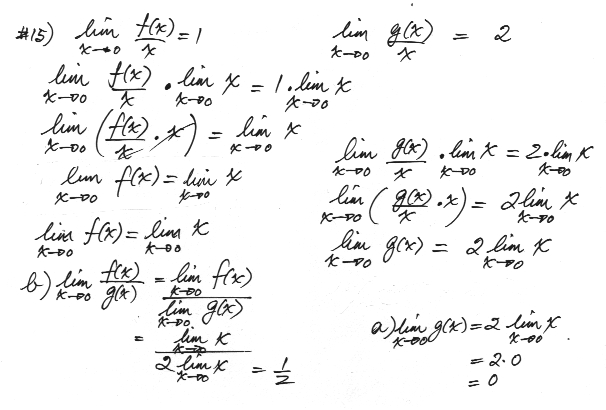 #15) lim x→0 f(x)/x = 1
lim x→0 g(x)/x = 2
lim x→0 f(x)/x · lim x→0 x = 1 · lim x→0 x
lim x→0 (f(x)/x · x) = lim x→0 x
lim x→0 f(x) = lim x→0 x
lim x→0 f(x) = lim x→0 x
lim x→0 g(x)/x · lim x→0 x = 2 · lim x→0 x
lim x→0 (g(x)/x · x) = 2 lim x→0 x
lim x→0 g(x) = 2 lim x→0 x
b) lim x→0 f(x)/g(x) = lim x→0 f(x) / lim x→0 g(x)
= lim x→0 x / 2 lim x→0 x = 1/2
a) lim x→0 g(x) = 2 lim x→0 x
= 2·0
= 0